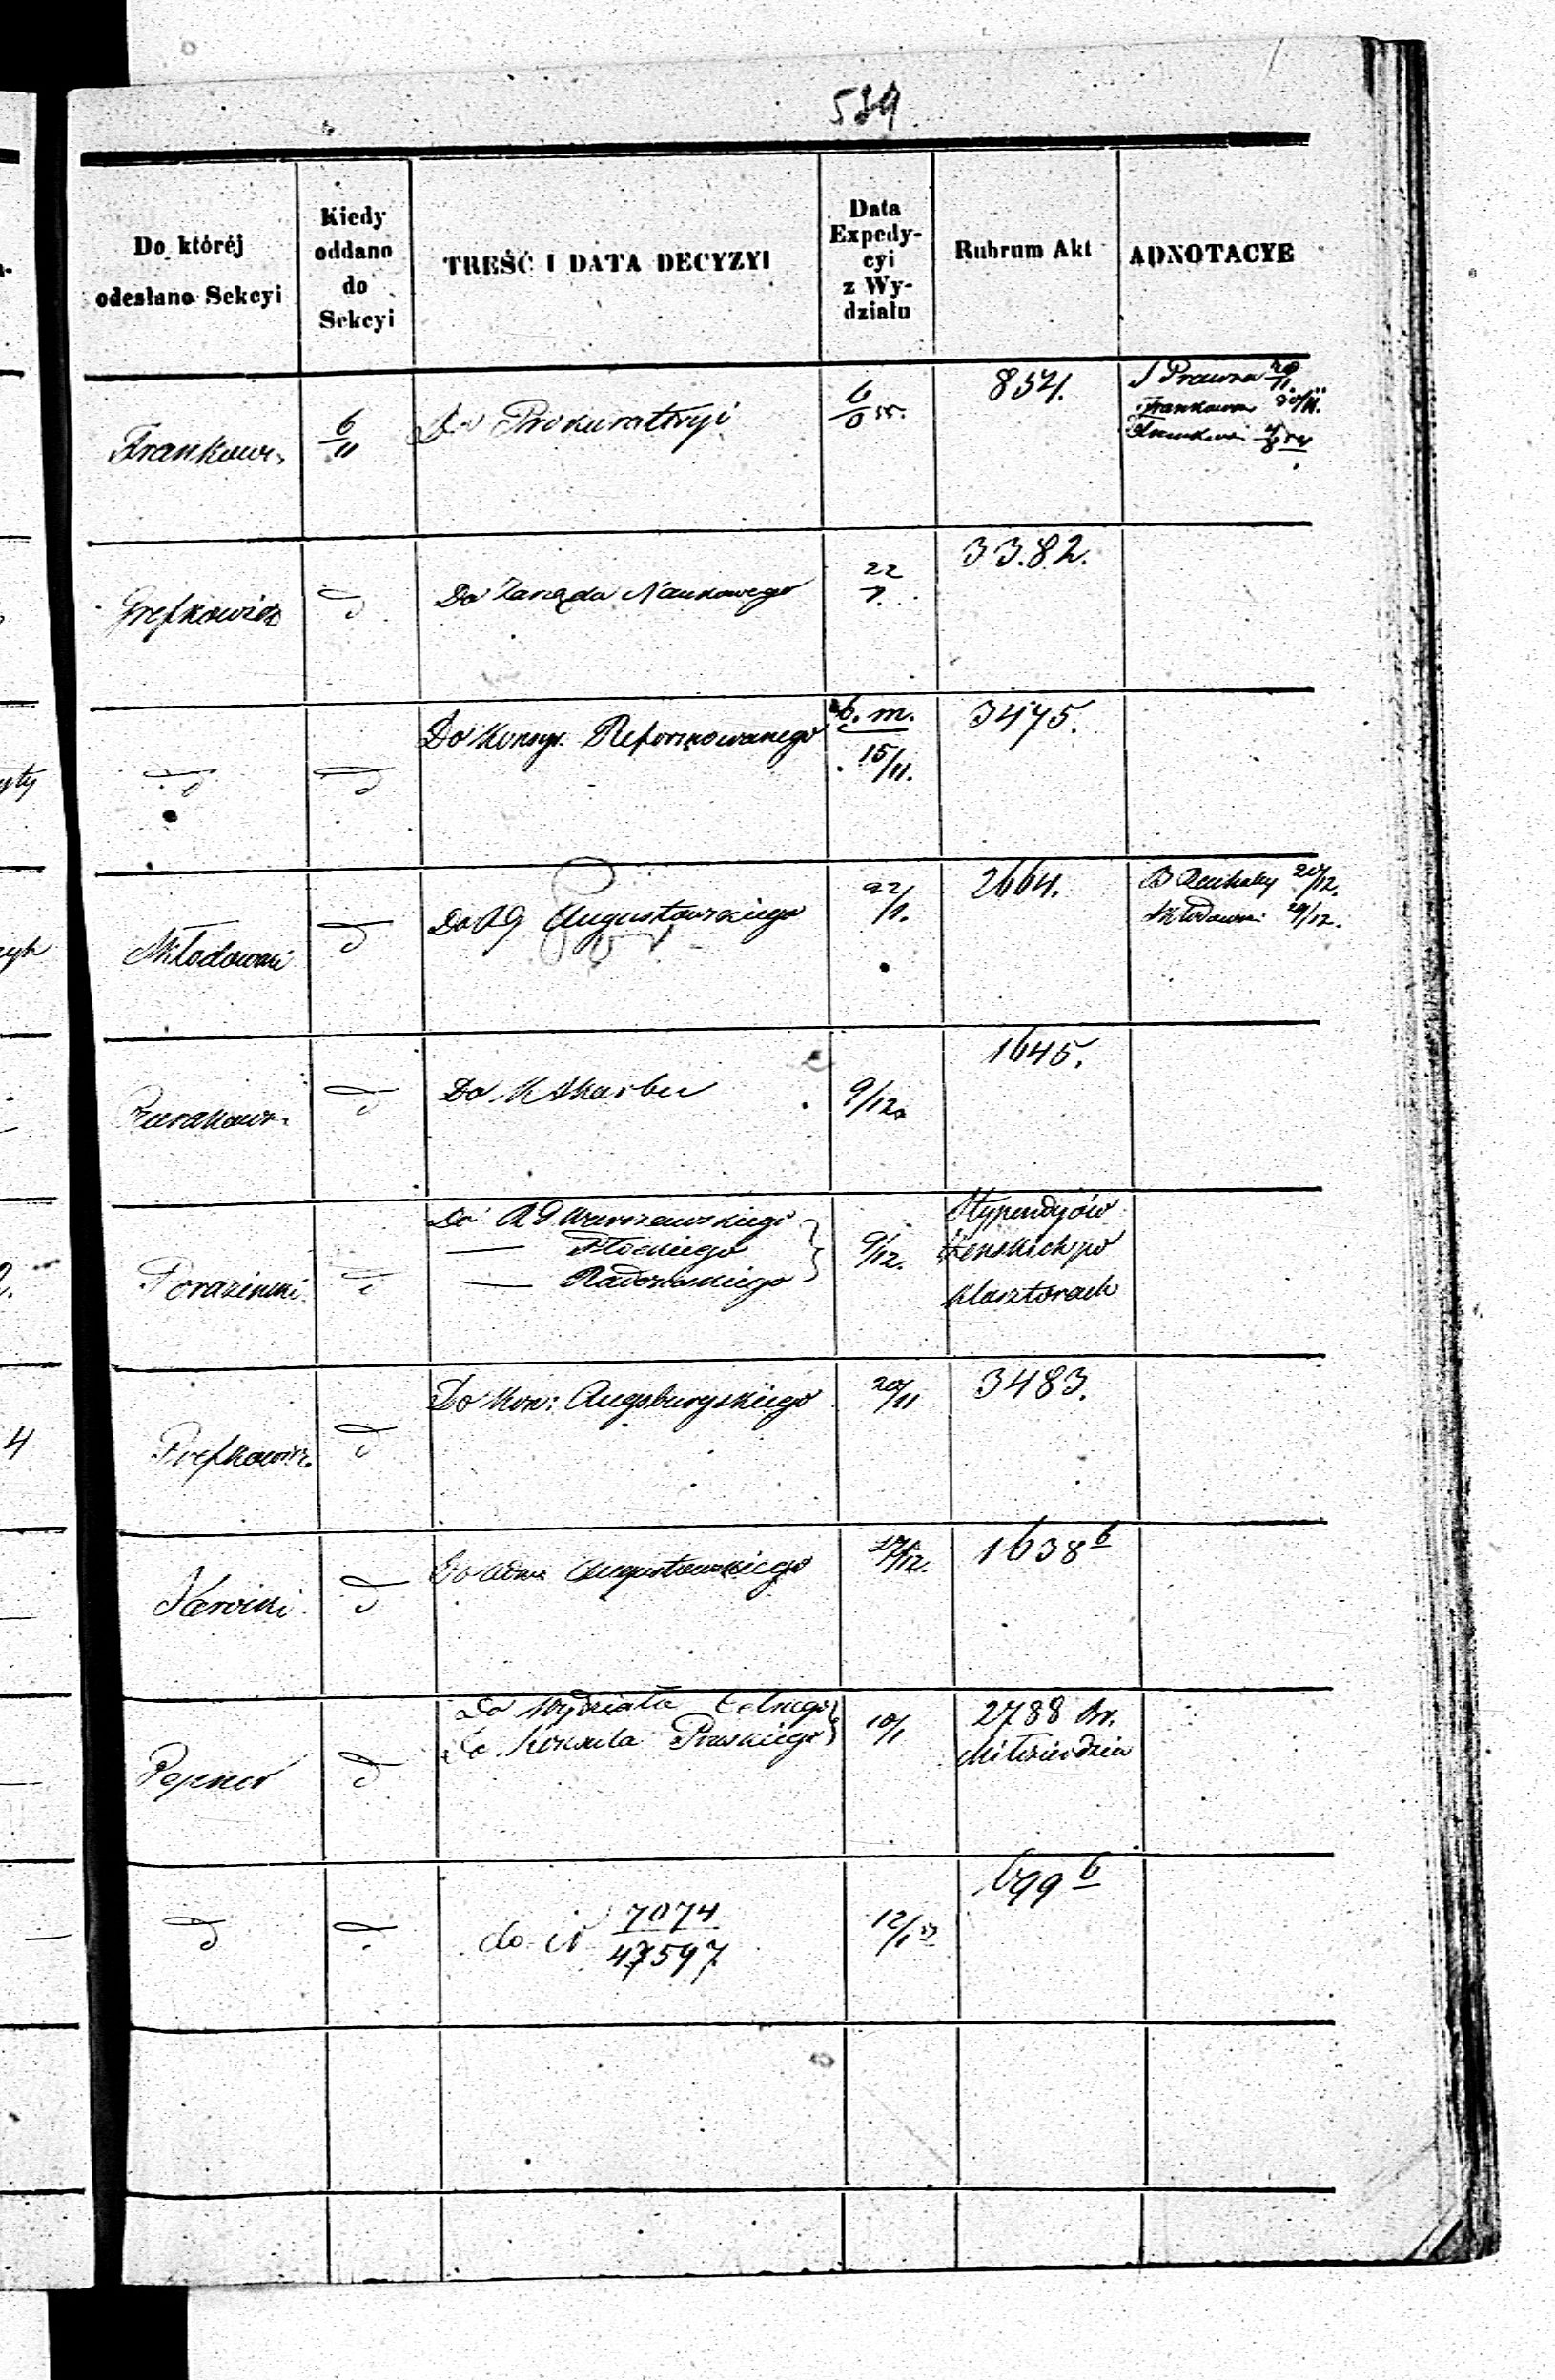 539
Do któréj
odesłano Sekcyi
Kiedy
oddano
do
Sekcyi
TREŚĆ I DATA DECYZYI
Data
Expedy-
cyi
z Wy-
działu
Rubrum Akt
ADNOTACYE
Frankows.
6/11
Do Prokuratoryi
854.
S Prawna 20/11.
Frankowski 20/11.
Grefkowicz
d
Do Zarządu Naukowego
22
1.
33.82.
d
d
Do Konsys. Reformowanego
b. m.
15/11.
3475.
Skłodowski
d
Do RG Augustowskiego
22/11.
2664.
20/12.
Skłodowski 29/12.
Żurakows.
d
Do K Skarbu
9/12
1645.
Porazinski
d
Do RG Warszawskiego
— Płockiego
— Radomskiego
9/12.
Stypendyów
żeńskich po
klasztorach
Grefkowicz
d
Do Kon: Augsburgskiego
20/11
3483.
d
Do Adm Augustowskiego
27/12.
1638 b
d
Do Wydziału Celnego
Do Konsula Pruskiego
10/1
2788 Br.
Miłosierdzia
d
d
do N 7074
47597
12/1
699 b